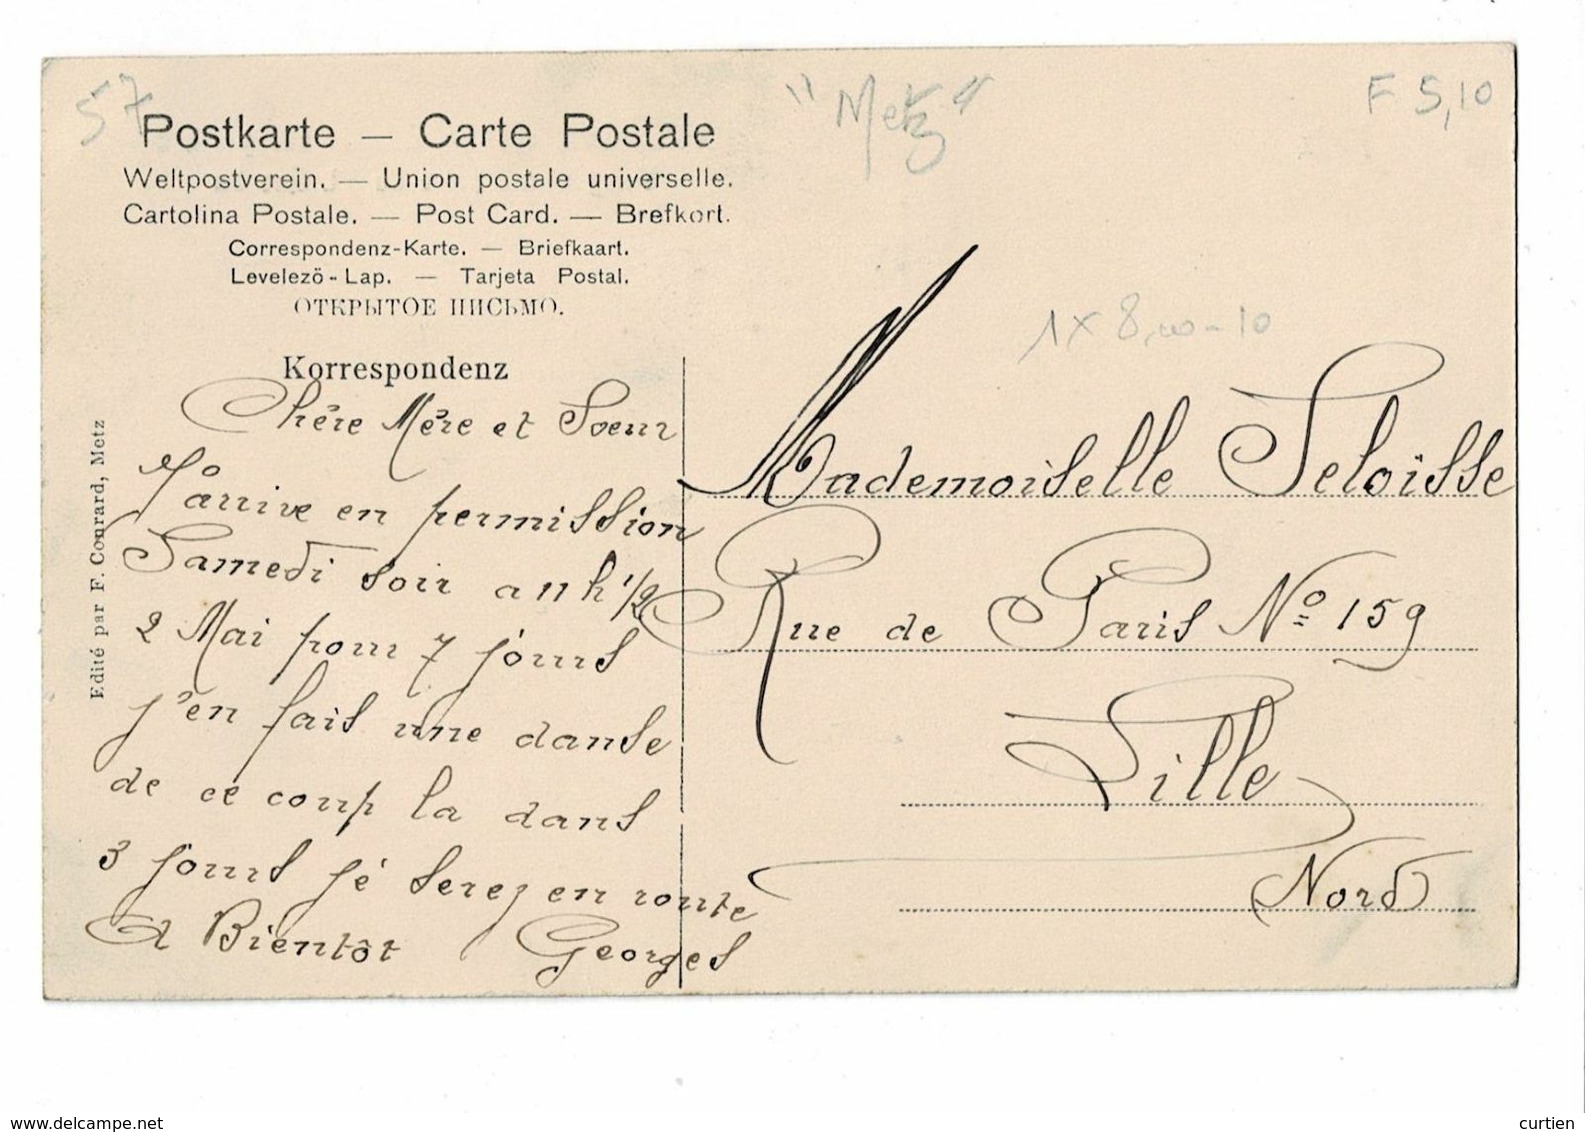 57
"Metz"
F 5,10
Postkarte — Carte Postale
Weltpostverein. — Union postale universelle.
Cartolina Postale. — Post Card. — Brefkort.
Correspondenz-Karte. — Briefkaart.
Levelezö-Lap. — Tarjeta Postal.
ОТКРЫТОЕ ПИСЬМО.
1 x 8,00 - 10
Korrespondenz
Chère Mère et Soeur
J'arrive en permission
Samedi soir a 11 h 1/2
2 Mai pour 7 jours
j'en fais une danse
de ce coup la dans
3 jours jé serez en route
A Bientôt Georges
Edité par F. Conrard, Metz
Mademoiselle Seloisse
Rue de Paris No 159
Lille
Nord
www.delcampe.net
curtien